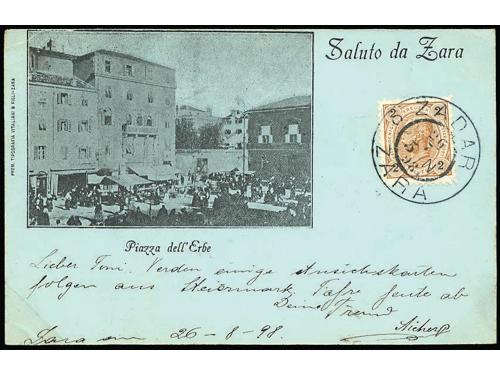 Saluto da Zara
PREM. TIPOGRAFIA VITALIANI & FIGLI-ZARA
ZADAR
ZARA
Piazza dell'Erbe
Lieber Toni. Werden einige Ansichtskarten
folgen aus Steiermark heute ab
Dein Freund
Zara am 26-8-98.